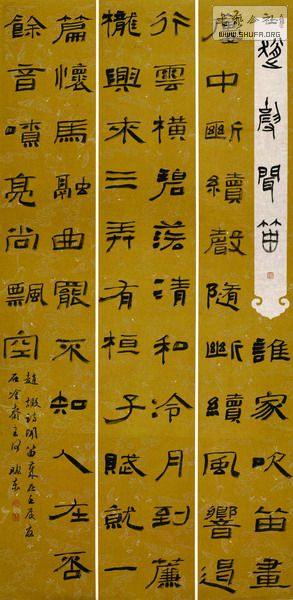 趙嘏聞笛
誰家吹笛畫
樓中斷續聲隨斷續風響遏
行雲橫碧落清和冷月到簾
櫳興來三弄有桓子賦就一
篇懷馬融曲罷不知人在否
餘音嘹亮尚飄空
趙嘏詩聞笛
WWW.SHUFA.ORG